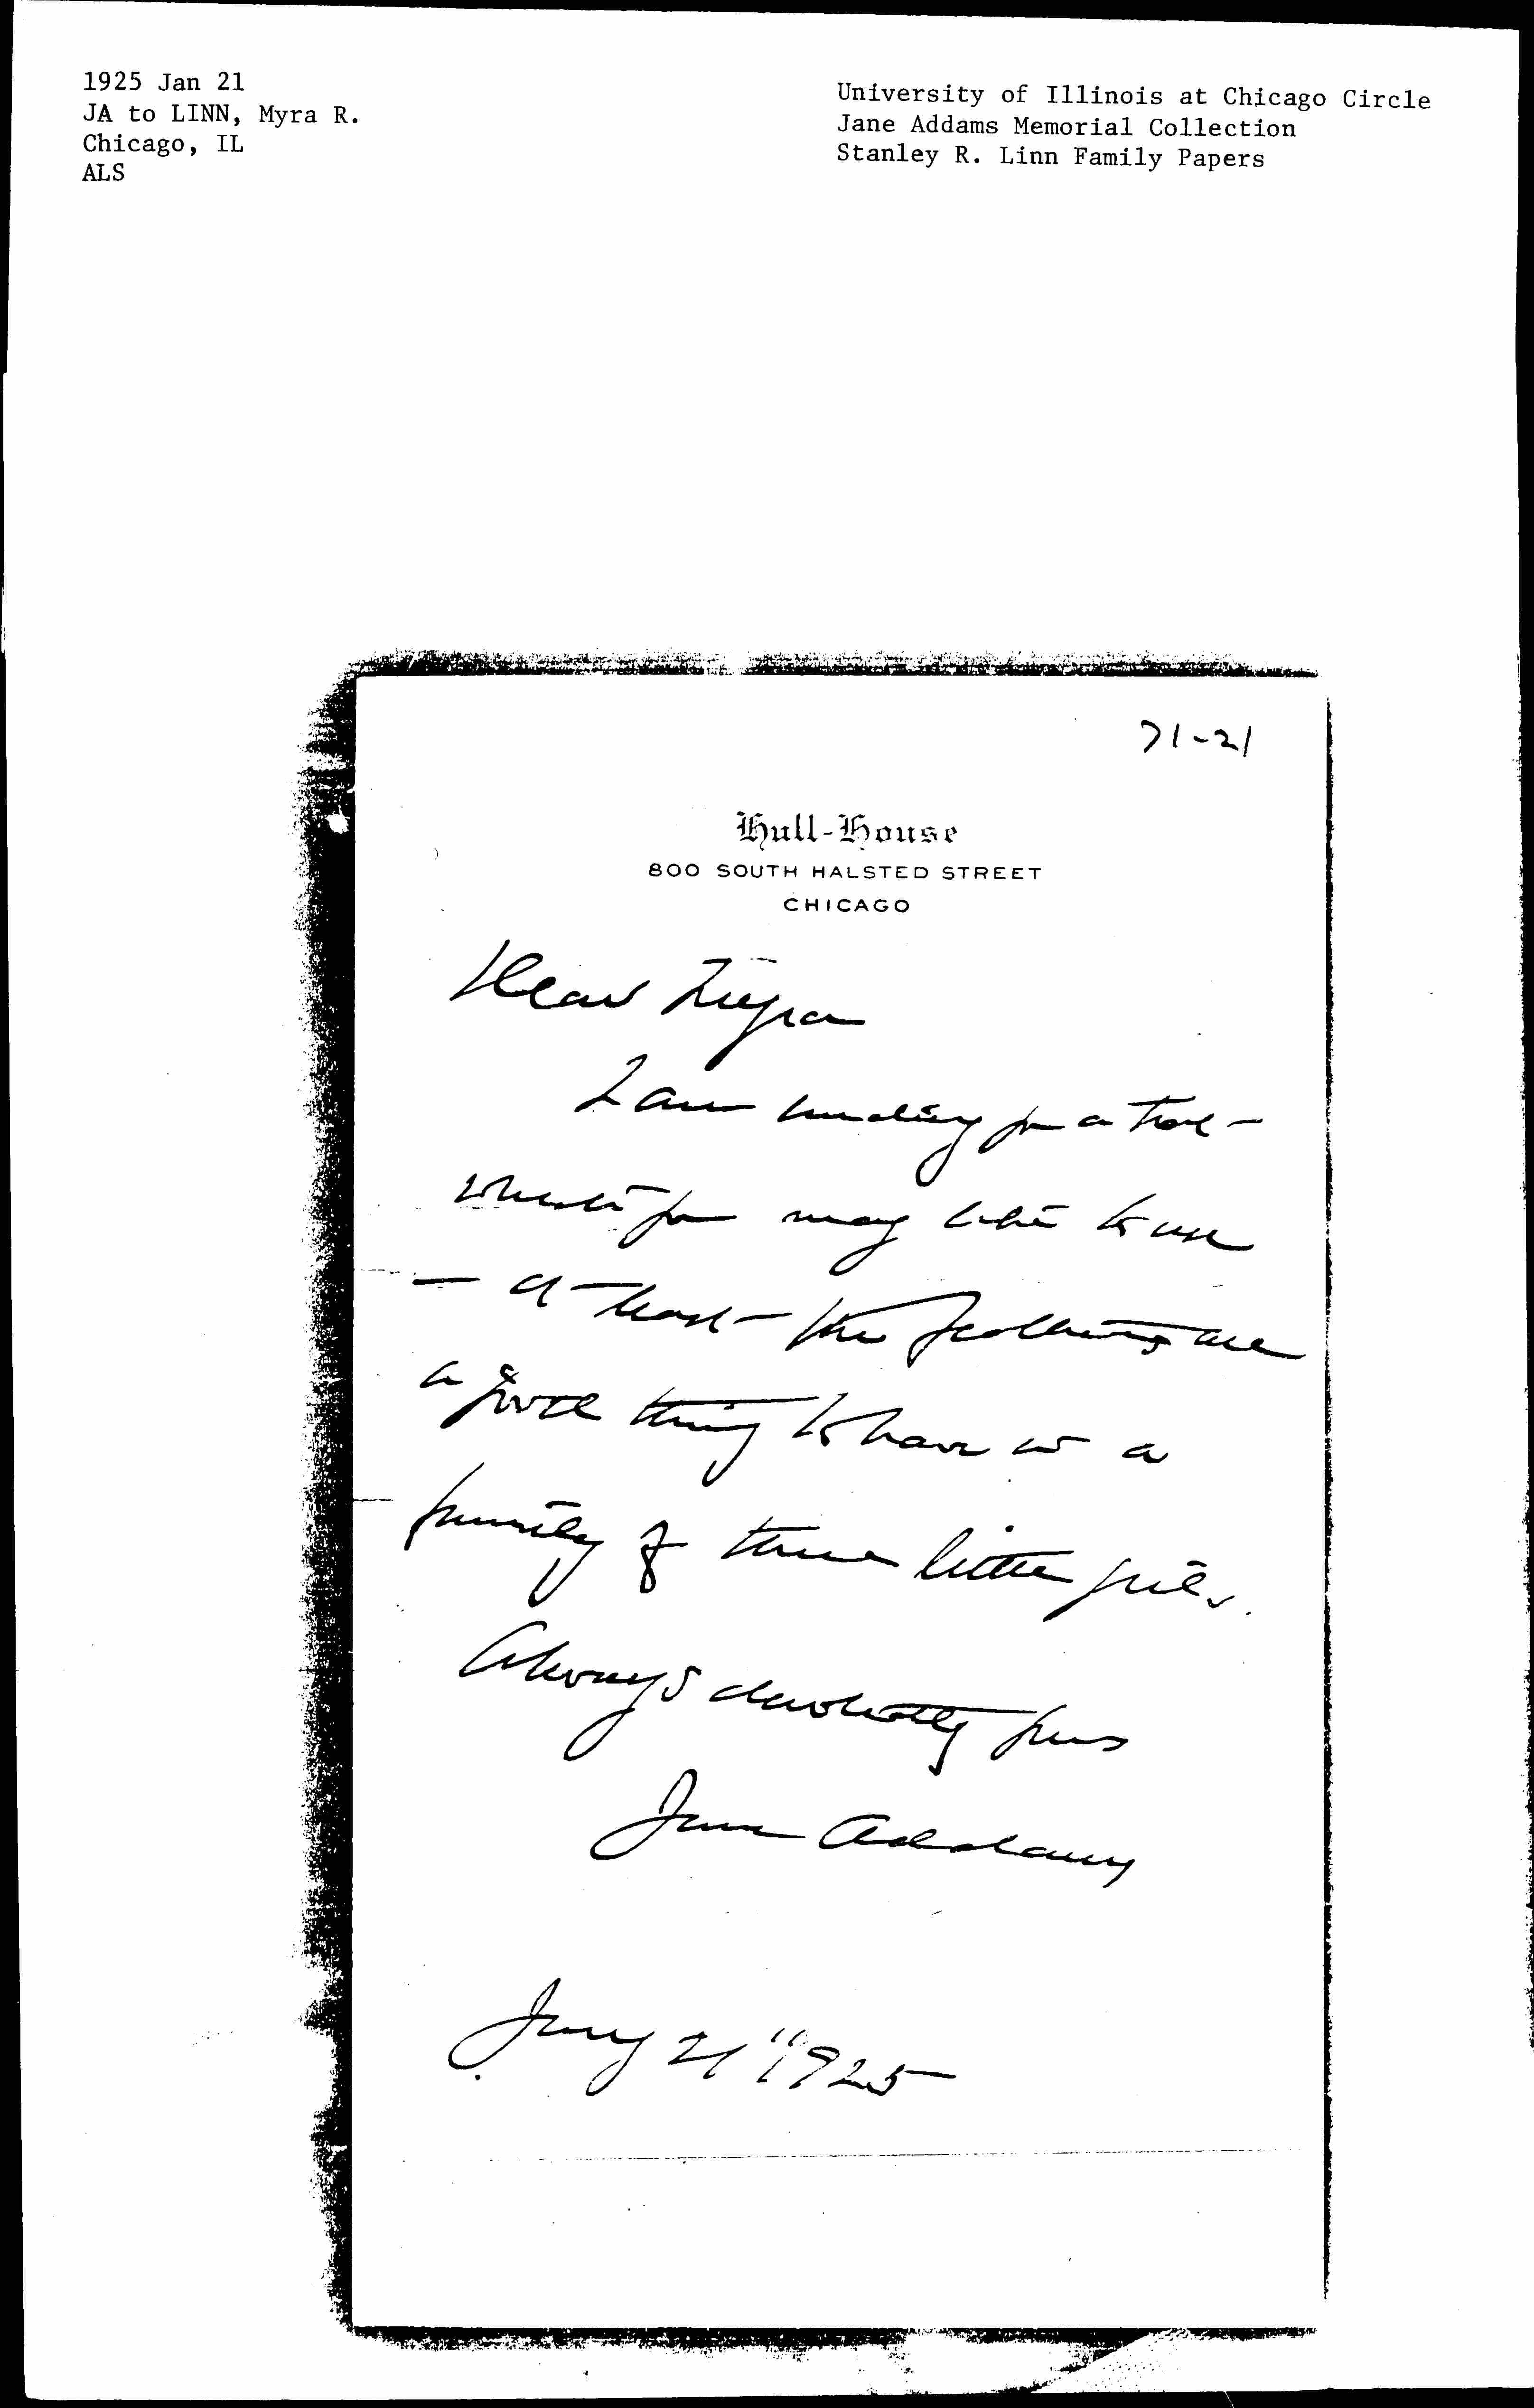 1925 Jan 21
JA to LINN, Myra R.
Chicago, IL
ALS
University of Illinois at Chicago Circle
Jane Addams Memorial Collection
Stanley R. Linn Family Papers
71-21
Hull-House
800 SOUTH HALSTED STREET
CHICAGO
Dear Myra
I am sending you a
which you may like to use
— at least the feathers are
a good thing to have in a
family of three little girls.
Always devotedly yours
Jane Addams
Jany 21" 1925